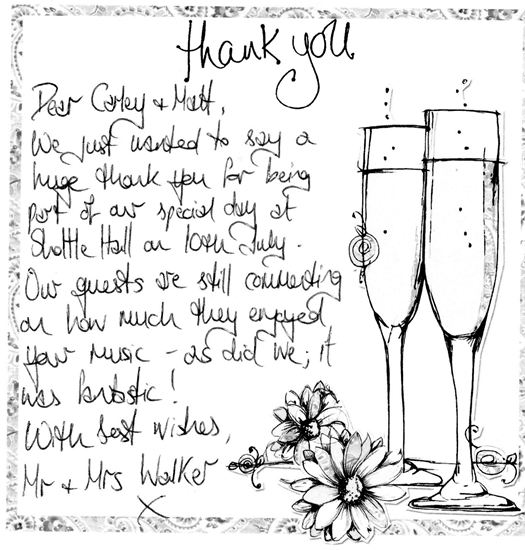 thank you
Dear Carley & Matt,
We just wanted to say a
huge thank you for being
part of our special day at
Shottle Hall on 10th July.
Our guests are still commenting
on how much they enjoyed
your music - as did we; it
was fantastic!
With best wishes,
Mr & Mrs Walker
x